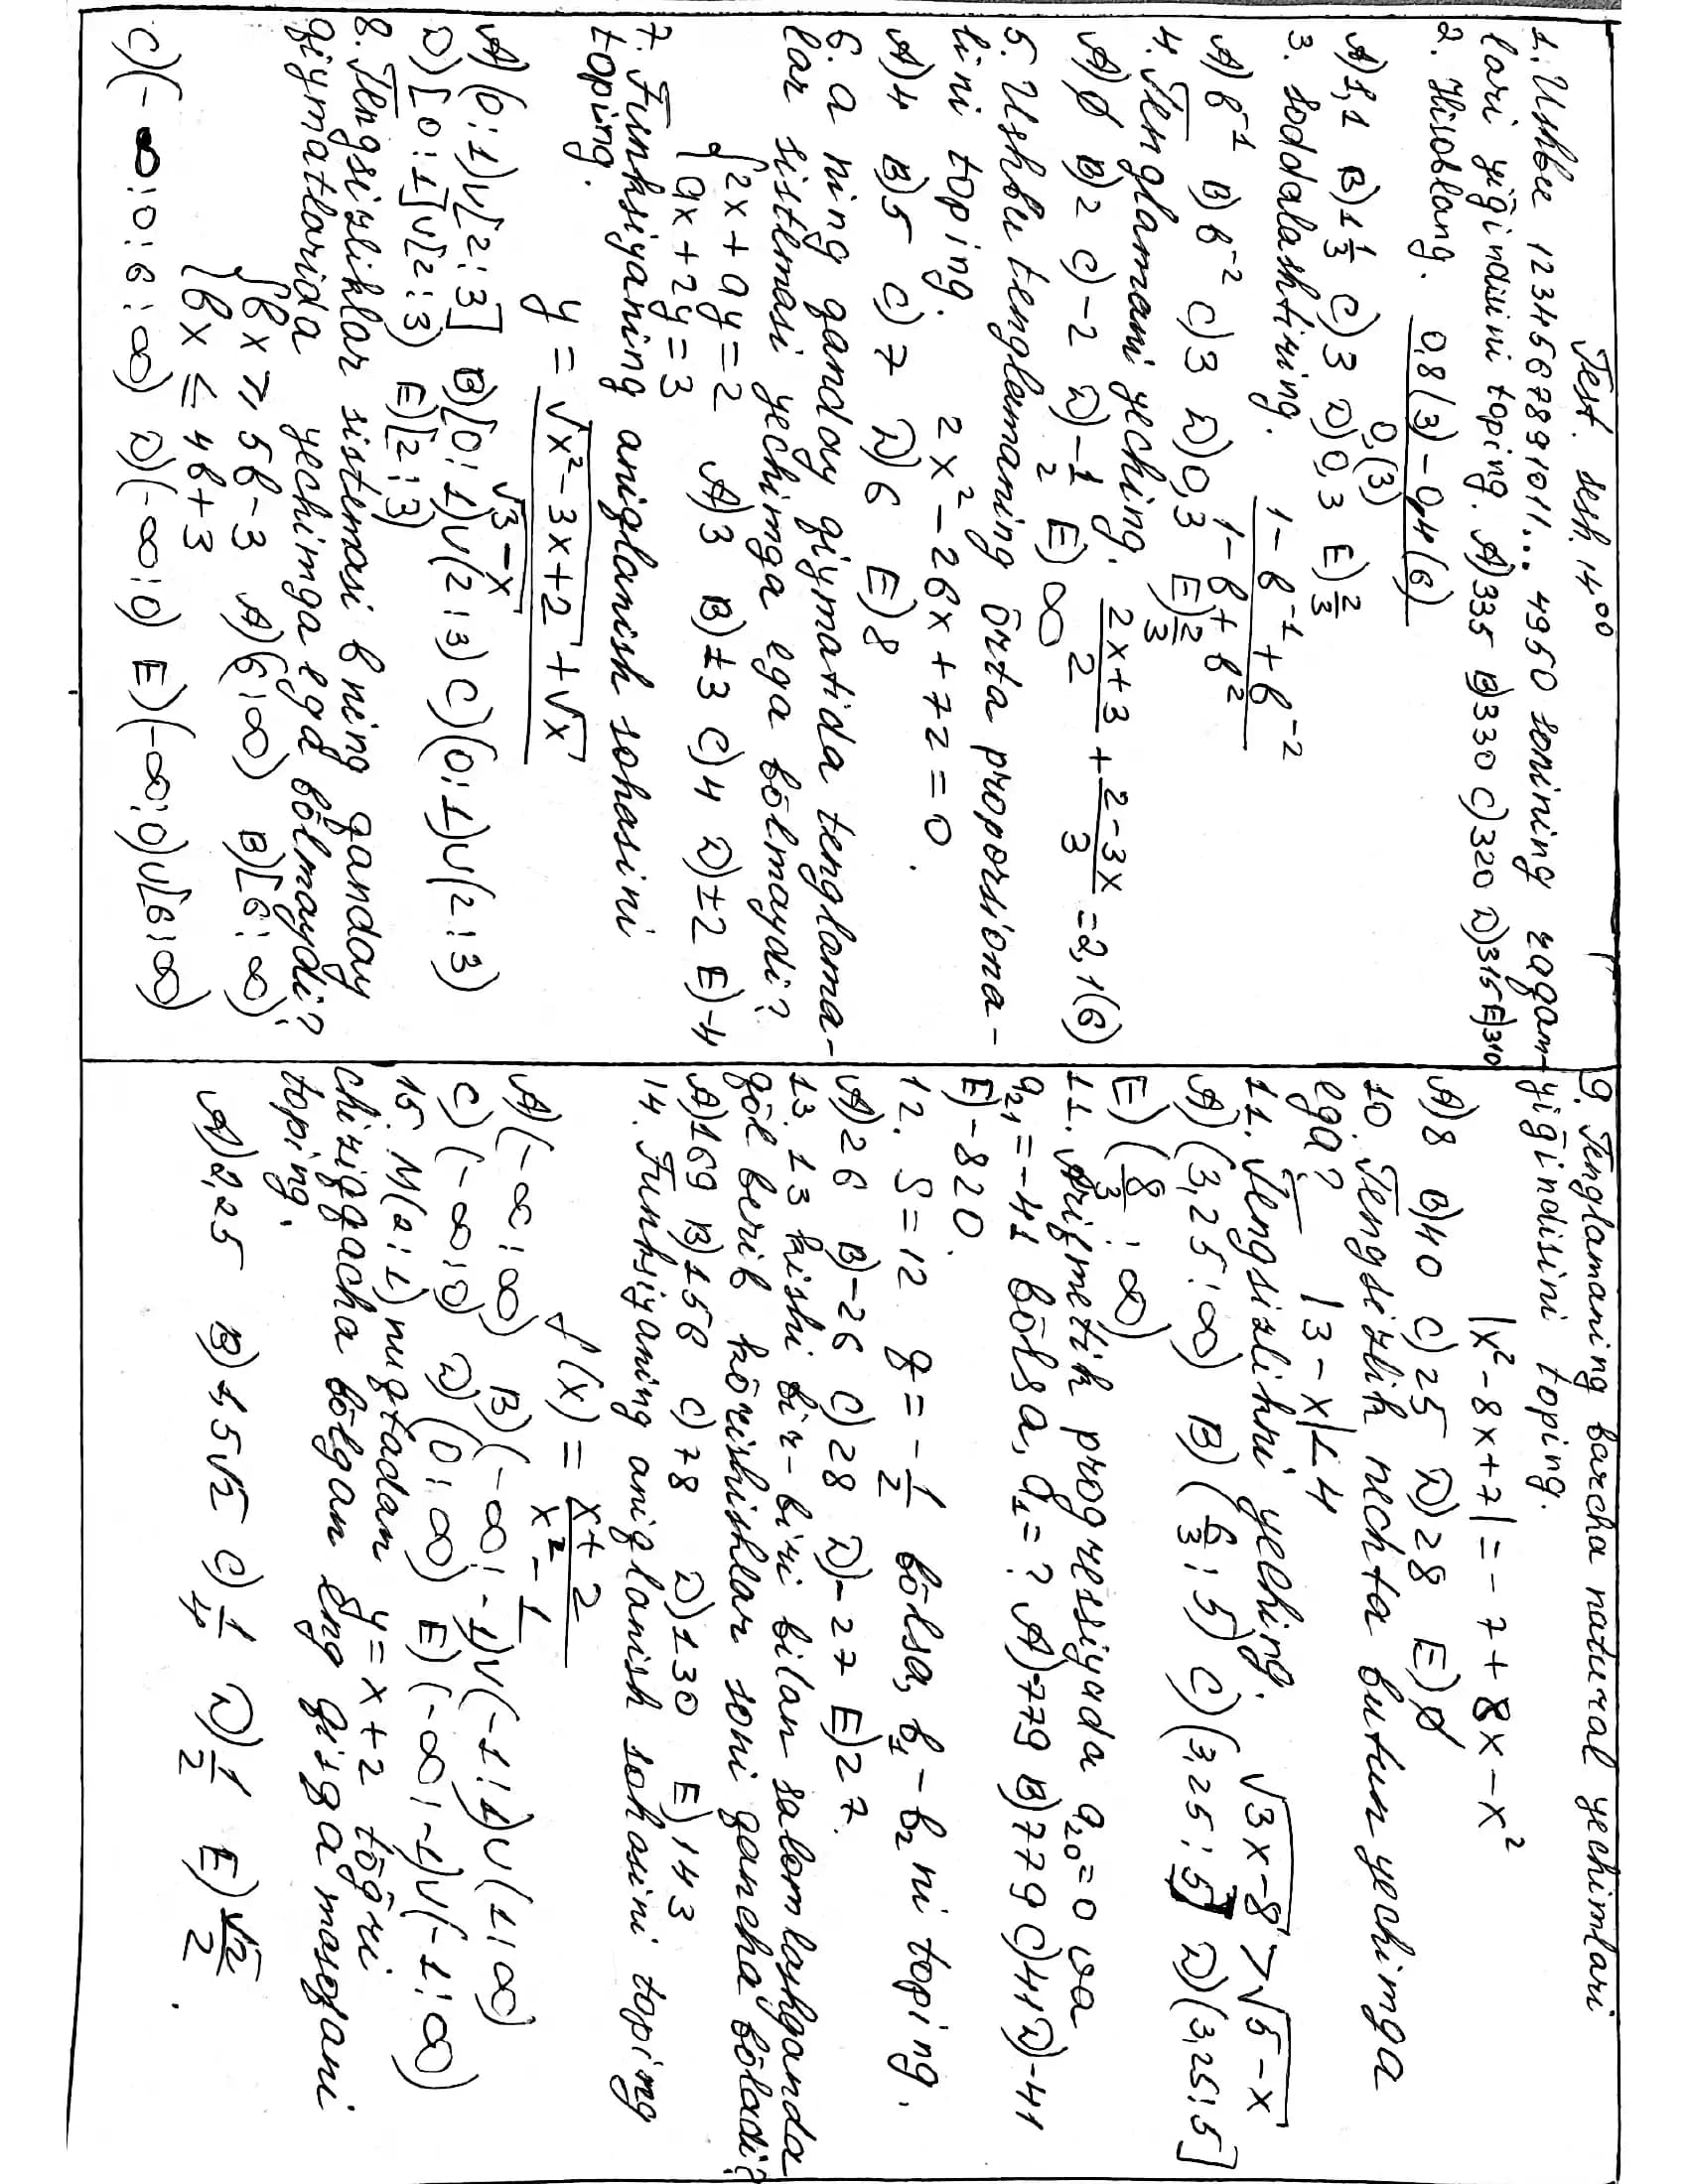 Test. sesh, 14,⁰⁰
1. Ushbu 1234567891011... 4950 sonining raqam-
lari yig̅indisini toping. A)335 B)330 C)320 D)315 E)310
2. Hisoblang. (0,8(3) - 0,4(6))/(0,(3))
A)1,1 B)1 1/3 C)3 D)0,3 E)2/3
3. Soddalashtiring. (1 - b⁻¹ + b⁻²)/(1 - b + b²)
A)b⁻¹ B)b⁻² C)3 D)0,3 E)2/3
4. Tenglamani yeching. (2x+3)/2 + (2-3x)/3 = 2,1(6)
A)∅ B)2 C)-2 D)-1/2 E)∞
5. Ushbu tenglamaning o̅rta proporsiona-
lini toping. 2x² - 26x + 72 = 0.
A)4 B)5 C)7 D)6 E)8
6. a ning qanday qiymatida tenglama-
lar sistemasi yechimga ega bo̅lmaydi?
{2x + ay = 2
{ax + 2y = 3 A)3 B)±3 C)4 D)±2 E)-4
7. Funksiyaning aniqlanish sohasini
toping.
y = (√(x²-3x+2) + √x)/(√(3-x))
A)(0;1)∪[2;3] B)[0;1)∪(2;3) C)(0;1)∪(2;3)
D)[0;1]∪[2;3) E)[2;3)
8. Tengsizliklar sistemasi b ning qanday
qiymatlarida yechimga ega bo̅lmaydi?
{bx ≥ 5b-3 A)(6;∞) B)[6;∞)
{bx ≤ 4b+3
C)(-∞;0;6;∞) D)(-∞;0) E)(-∞;0)∪[6;∞)
9. Tenglamaning barcha natural yechimlari
yig̅indisini toping.
|x²-8x+7| = -7+8x-x²
A)8 B)40 C)25 D)28 E)∅
10. Tengsizlik nechta butun yechimga
ega? |3-x|<4
11. Tengsizlikni yeching. √(3x-8) > √(5-x)
A)(3,25;∞) B)(6/3;5) C)(3,25;5] D)(3,25;5]
E)(8/3;∞)
11. Arifmetik progressiyada a₂₀=0 va
a₂₁=-41 bo̅lsa, a₁=? A)-779 B)779 C)41 D)-41
E)-820.
12. S=12 q=-1/2 bo̅lsa, b₁-b₂ ni toping.
A)26 B)-26 C)28 D)-27 E)27.
13. 13 kishi bir-biri bilan salomlashganda
qo̅l berib ko̅rishishlar soni qancha bo̅ladi?
A)169 B)156 C)78 D)130 E)143
14. Funksiyaning aniqlanish sohasini toping
f(x) = (x+2)/(x²-1)
A)(-∞;∞) B)(-∞;-1)∪(-1;1)∪(1;∞)
C)(-∞;0) D)(0;∞) E)(-∞;-1)∪(-1;∞)
15. M(2;1) nuqtadan y=x+2 to̅g̅ri
chiziqgacha bo̅lgan eng qisqa masofani
toping.
A)2,25 B)1,5√2 C)1/4 D)1/2 E)√2/2.